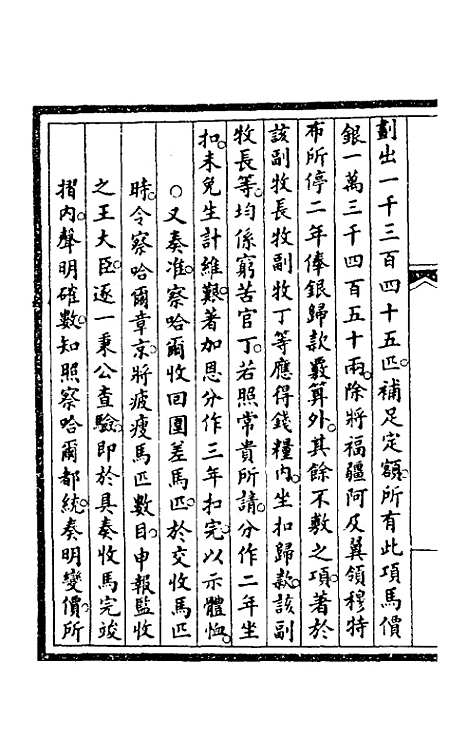 劃出一千三百四十五匹補足定額所有此項馬價
銀一萬三千四百五十兩除將福疆阿及翼領穆特
布所停二年俸銀歸款覈算外其餘不敷之項著於
該副牧長牧副牧丁等應得錢糧內坐扣歸款該副
牧長等均係窮苦官丁若照常貴所請分作二年坐
扣未免生計維艱著加恩分作三年扣完以示體恤
○又奏准察哈爾收回圍差馬匹於交收馬匹
時令察哈爾章京將疲瘦馬匹數目申報監收
之王大臣逐一秉公查驗即於具奏收馬完竣
摺內聲明確數知照察哈爾都統奏明變價所